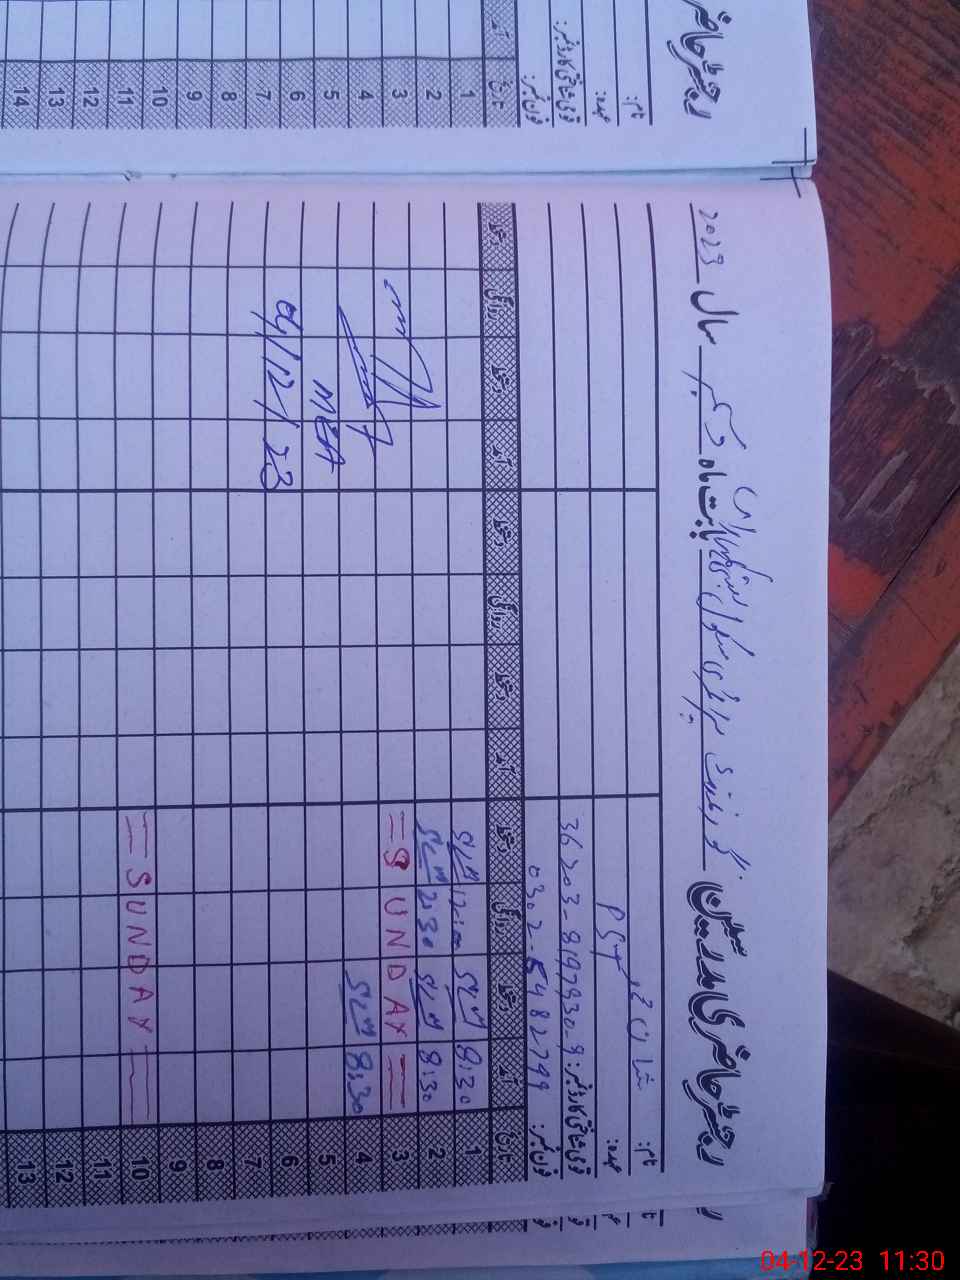 رجسٹر حاضری مدرسین گورنمنٹ پرائمری سکول بابت ماہ دسمبر سال 2023
نام:
عہدہ: PST
قومی شناختی کارڈ نمبر: 36203-8197930-9
فون نمبر: 0302-5482799
تاریخ آمد دستخط روانگی دستخط آمد دستخط روانگی دستخط آمد دستخط روانگی دستخط
1 8:30 12:00
2 8:30 2:30
3 SUNDAY
4 8:30
5 MEA
6 04/12/23
7
8
9
10 SUNDAY
11
12
13
رجسٹر حاضری
نام:
عہدہ:
قومی شناختی کارڈ نمبر:
فون نمبر:
تاریخ
1
2
3
4
5
6
7
8
9
10
11
12
13
14
04-12-23 11:30